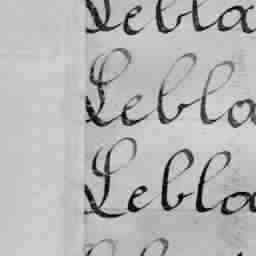 Lebla
Lebla
Lebla